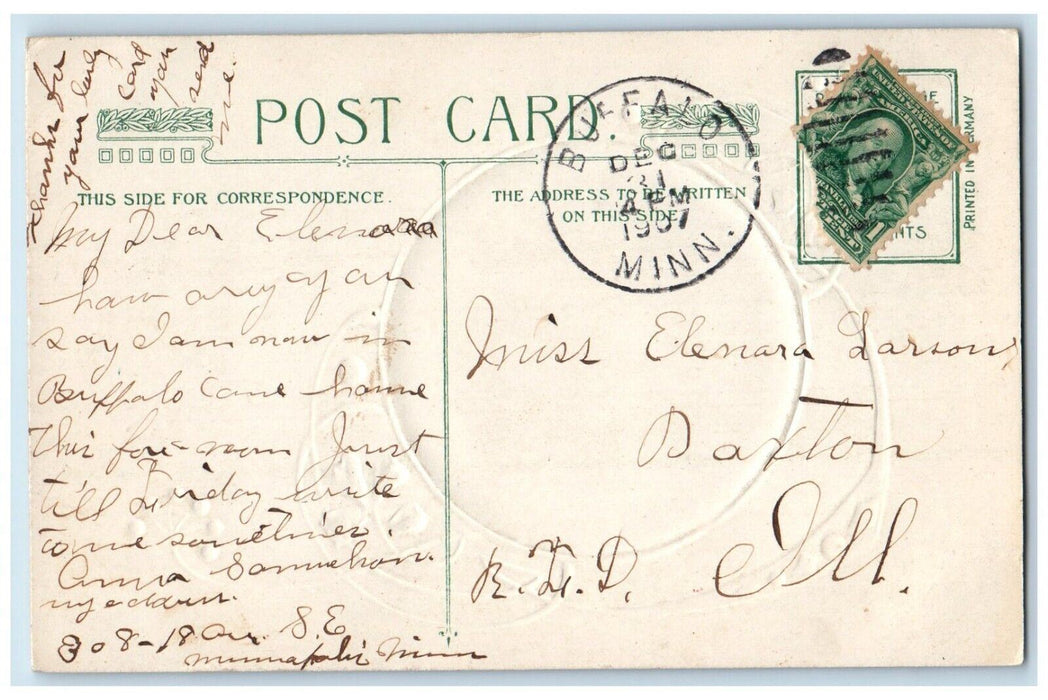 thanks for
your lovely
card
you
send
me.
POST CARD.
THIS SIDE FOR CORRESPONDENCE.
THE ADDRESS TO BE WRITTEN
ON THIS SIDE
BUFFALO
DEC
31
4 PM
1907
MINN.
UNITED STATES OF
AMERICA
1
NTS
PRINTED IN GERMANY
My Dear Elenora
how are you
say I am now in
Buffalo came home
this fore-noon Just
till Friday write
to me sometimes.
Anna Samuelson.
my address.
308-18 Av. S.E
Minneapolis Minn
Miss Elenara Larson,
Paxton
R.F.D. Ill.